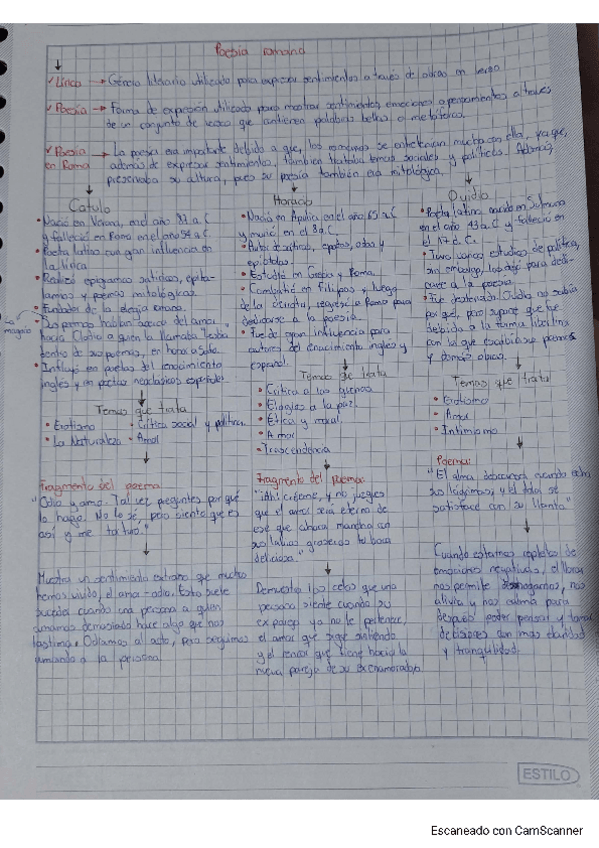 Poesía romana
✓ Lírica → Género literario utilizado para expresar sentimientos a través de obras en verso
✓ Poesía → Forma de expresión utilizada para mostrar sentimientos, emociones o pensamientos a través
de un conjunto de versos que contienen palabras bellas o metafóricas.
✓ Poesía en Roma → La poesía era importante debido a que, los romanos se entretenían mucho con ella, ya que,
además de expresar sentimientos, también trataba temas sociales y políticos. Además,
preservaba su altura, pues su poesía también era mitológica.
Catulo
• Nació en Verona, en el año 87 a.C
y falleció en Roma en el año 54 a.C
• Poeta latino con gran influencia en
la lírica
• Realizó epigramas satíricos, epita-
lamios y poemas mitológicos.
• Fundador de la elegía romana.
• Dos poemas hablan acerca del amor
hacia Clodia a quien la llamaba Lesbia
dentro de su poesía, en honor a Safo.
• Influyó en poetas del renacimiento
inglés y en poetas neoclásicos españoles.
Temas que trata
• Erotismo • Crítica social y política
• La Naturaleza • Amor
Fragmento del poema
"Odio y amo. Tal vez preguntes por qué
lo hago. No lo sé, pero siento que es
así y me torturo."
Muestra un sentimiento extraño que muchos
hemos vivido, el amor-odio. Esto suele
suceder cuando una persona a quien
amamos demasiado hace algo que nos
lastima. Odiamos el acto, pero seguimos
amando a la persona.
Horacio
• Nació en Apulia en el año 65 a.C
y murió en el 8 a.C.
• Autor de sátiras, epodos, odas y
epístolas.
• Estudió en Grecia y Roma.
• Combatió en Filipos y luego
de la derrota, regresó a Roma para
dedicarse a la poesía.
• Fue de gran influencia para
autores del renacimiento inglés y
español.
Temas que trata
• Crítica a las guerras
• Elogios a la paz
• Ética y moral
• Amor
• Trascendencia
Fragmento del poema:
"¡Ah! créeme, y no juzgues
que el amor será eterno de
ese que ahora mancha con
sus labios groseros tu boca
deliciosa."
Demuestra los celos que una
persona siente cuando su
ex pareja ya no le pertenece,
el amor que sigue sintiendo
y el rencor que tiene hacia la
nueva pareja de su exenamorado.
Ovidio
• Poeta latino nacido en Sulmona
en el año 43 a.C y falleció en
el 17 d.C.
• Tuvo varios estudios de política,
sin embargo, los dejó para dedi-
carse a la poesía.
• Fue desterrado. Ovidio no sabía
por qué, pero supone que fue
debido a la forma libertina
con la que escribía sus poemas
y demás obras.
Temas que trata
• Erotismo
• Amor
• Intimismo
Poema:
"El alma descansa cuando echa
sus lágrimas; y el dolor se
satisface con su llanto."
Cuando estamos repletos de
emociones negativas, el llorar
nos permite desahogarnos, nos
alivia y nos calma para
después poder pensar y tomar
decisiones con más claridad
y tranquilidad.
ESTILO
Escaneado con CamScanner